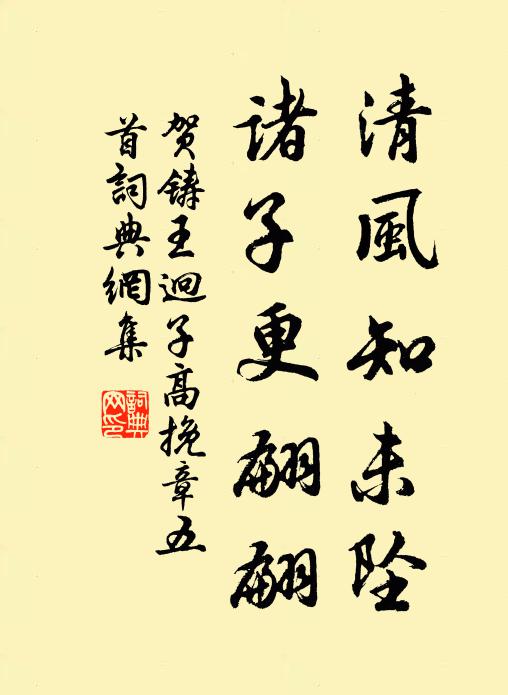 清風知未墜
諸子更翩翩
贺鑄王迴子高挽章五
首詞典網集
詞典
网印